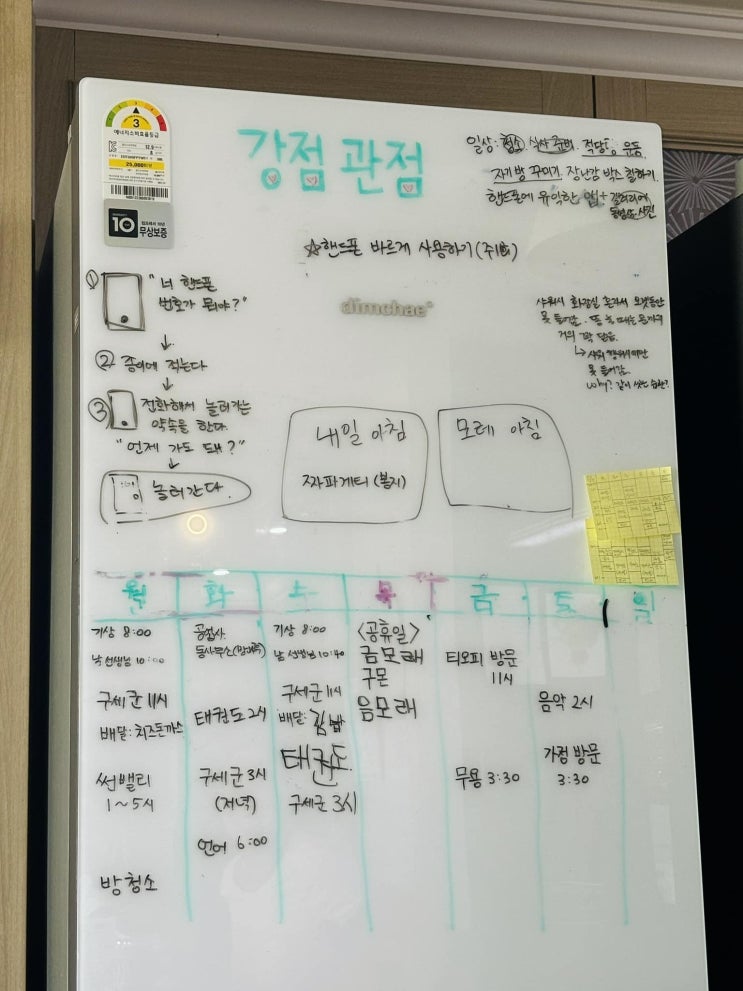 3
에너지소비효율등급
25,000
10
무상보증
강점 관점
일상: 청소 식사 준비, 적당한 운동,
자기방 꾸미기, 장난감 박스 정하기,
핸드폰에 유익한 앱+ 갤러리에
사진
☆핸드폰 바르게 사용하기
dimchae
① "너 핸드폰
번호가 뭐야?"
↓
② 종이에 적는다
↓
③ 전화해서 놀러가는
약속을 한다.
"언제 가도 돼?"
↓
놀러간다.
샤워시 화장실 혼자서
못 들어감.
못 들어감.
why?
내일 아침
짜파게티
모레 아침
월 화 수 목 금 토 일
기상 8:00
낮 선생님 10:00
구세군 11시
배달: 치즈돈까스
썬밸리
1~5시
방 청소
동사무소
태권도 2시
구세군 3시
(저녁)
언어 6:00
기상 8:00
낮 선생님 10:40
구세군 11시
배달: 김밥
태권도
구세군 3시
<공휴일>
금모래
구몬
음모래
티오피 방문
11시
무용 3:30
음악 2시
가정 방문
3:30